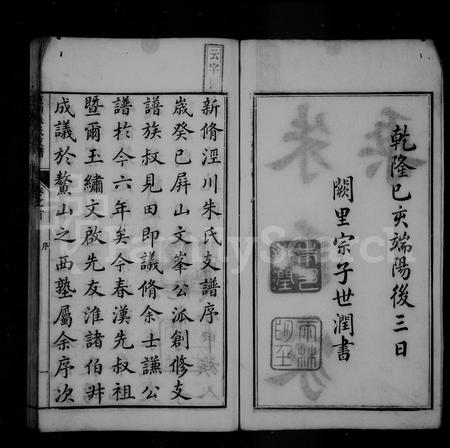 乾隆己亥端陽後三日
闕里宗子世潤書
云字
新脩涇川朱氏支譜序
歲癸巳屏山文峯公派創修支
譜族叔見田即議脩余士謙公
譜於今六年矣今春漢先叔祖
暨爾玉繡文啟先友淮諸伯叔
成議於鰲山之西塾屬余序次
序
FamilySearch